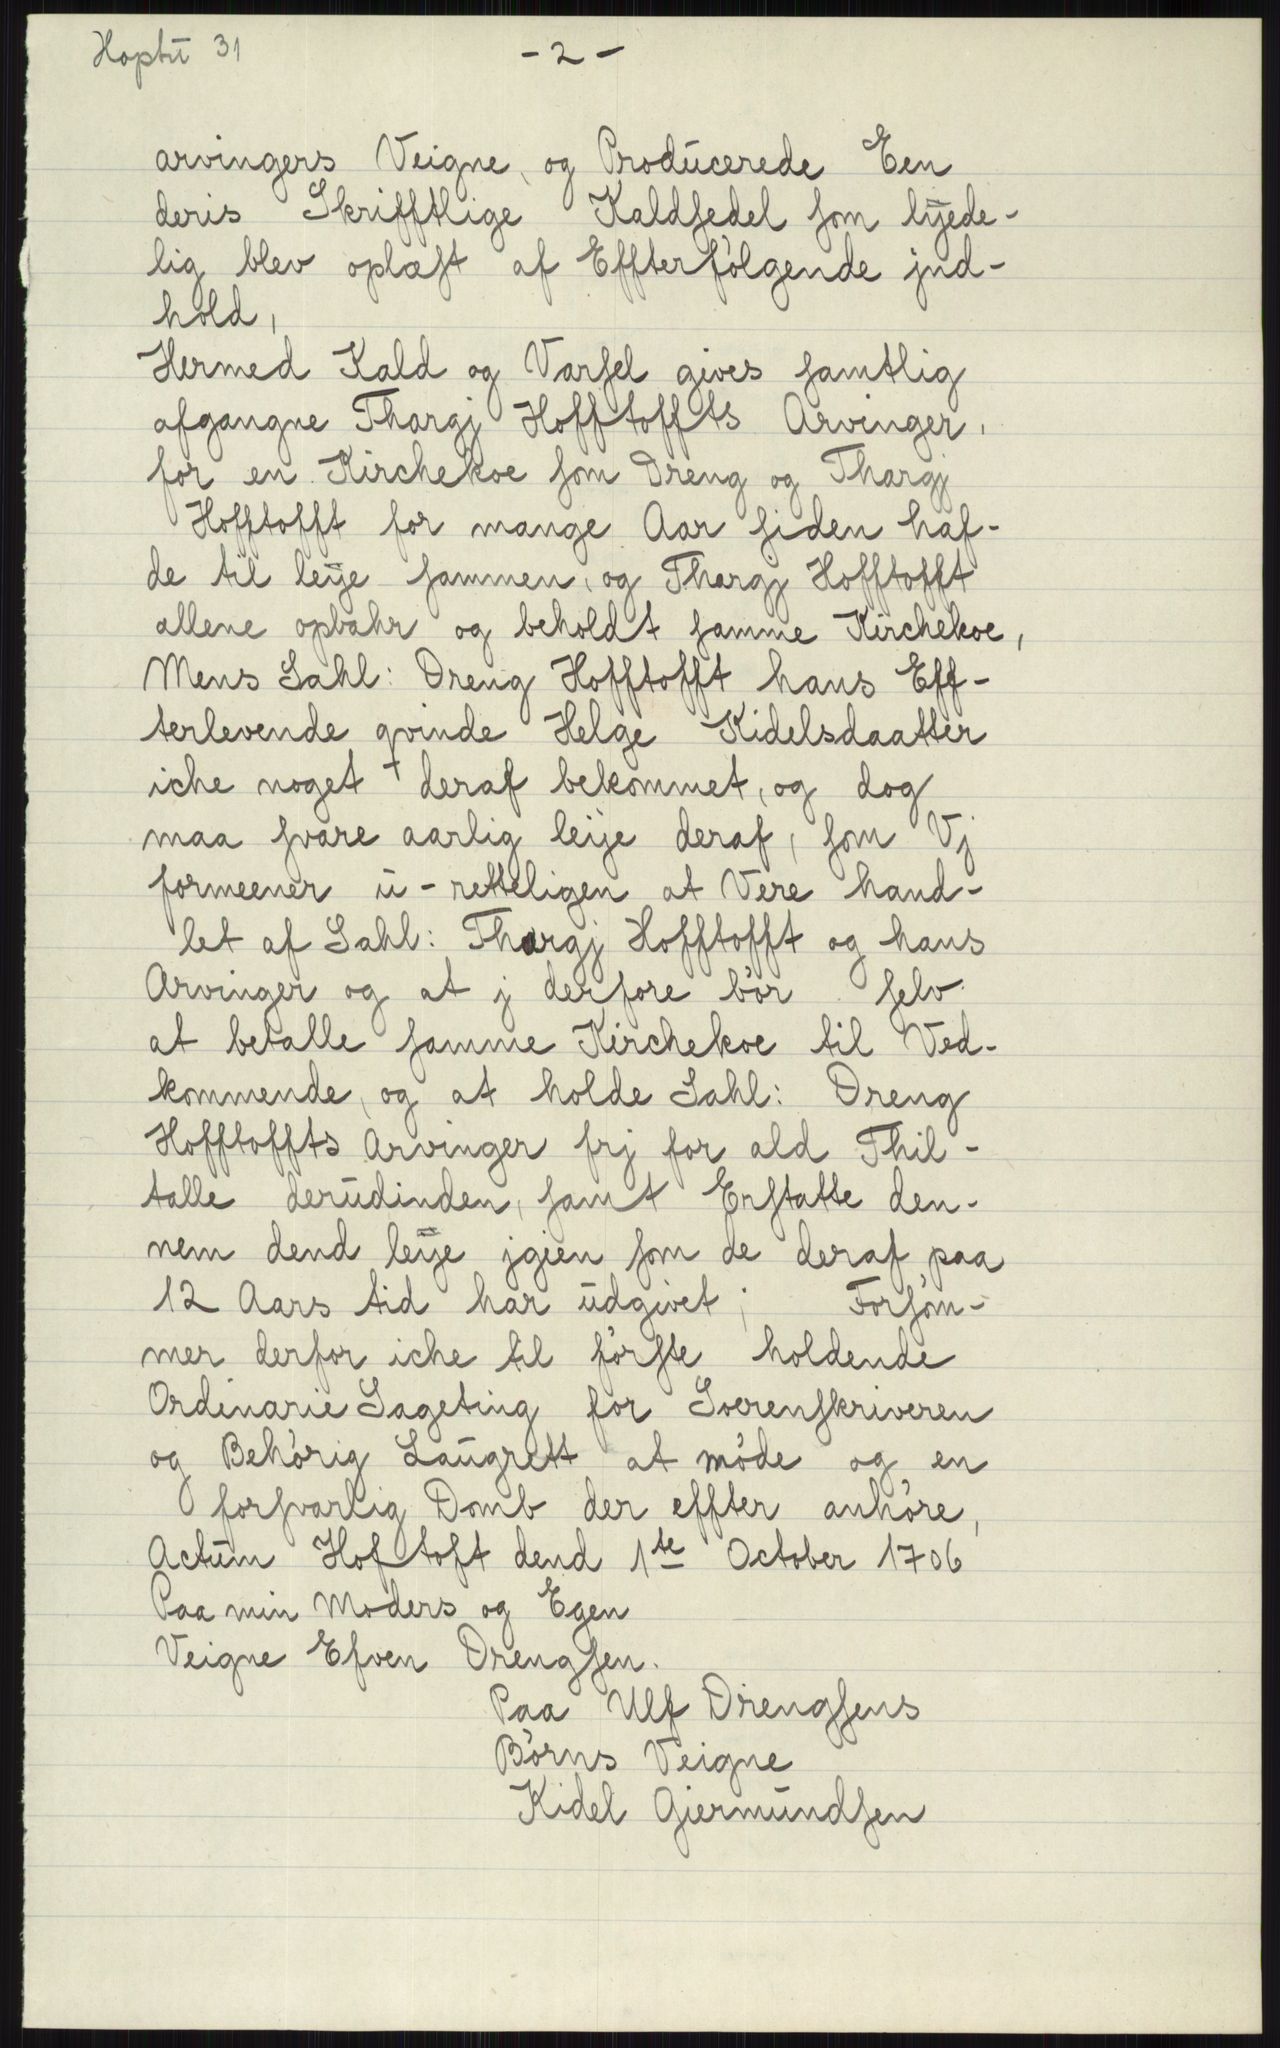 Hoptū 31
- 2 -
arvingers Veigne, og Prodūcerede Een
deris Skrifftlige Kaldsedel som lÿede-
lig blev oplæst af Effterfølgende jnd-
hold,
Hermed Kald og Varsel gives samtlig
afgangne Thargj Hofftoffts Arvinger,
for en Kirchekoe som Dreng og Thargj
Hofftofft for mange Aar siden haf-
de til leÿe sammen, og Thargj Hofftofft
allene opbahr og beholdt samme Kirchekoe,
Mens Sahl: Dreng Hofftofft hans Eff-
terlevende qvinde Helge Kidelsdaatter
iche noget + deraf bekommet, og dog
maa svare aarlig leÿe deraf, som Vj
formeener ū-retteligen at Vere hand-
let af Sahl: Thargj Hofftofft og hans
Arvinger og at j derfore bør selv
at betalle samme Kirchekoe til Ved-
kommende, og at holde Sahl: Dreng
Hofftoffts Arvinger frj for ald Thil-
talle derūdinden, samt Erstatte den-
nem dend leÿe jgien som de deraf paa
12 Aars tid har ūdgivet; Forsøm-
mer derfor iche til første holdende
Ordinarie Sageting for Soerenskriveren
og Behørig Laūgrett at møde og en
forsvarlig Domb der effter anhøre,
Actūm Hoftoft dend 1te October 1706
Paa min Moders og Egen
Veigne Efven Drengsen.
Paa Ulf Drengsens
Børns Veigne
Kidel Giermūndsen